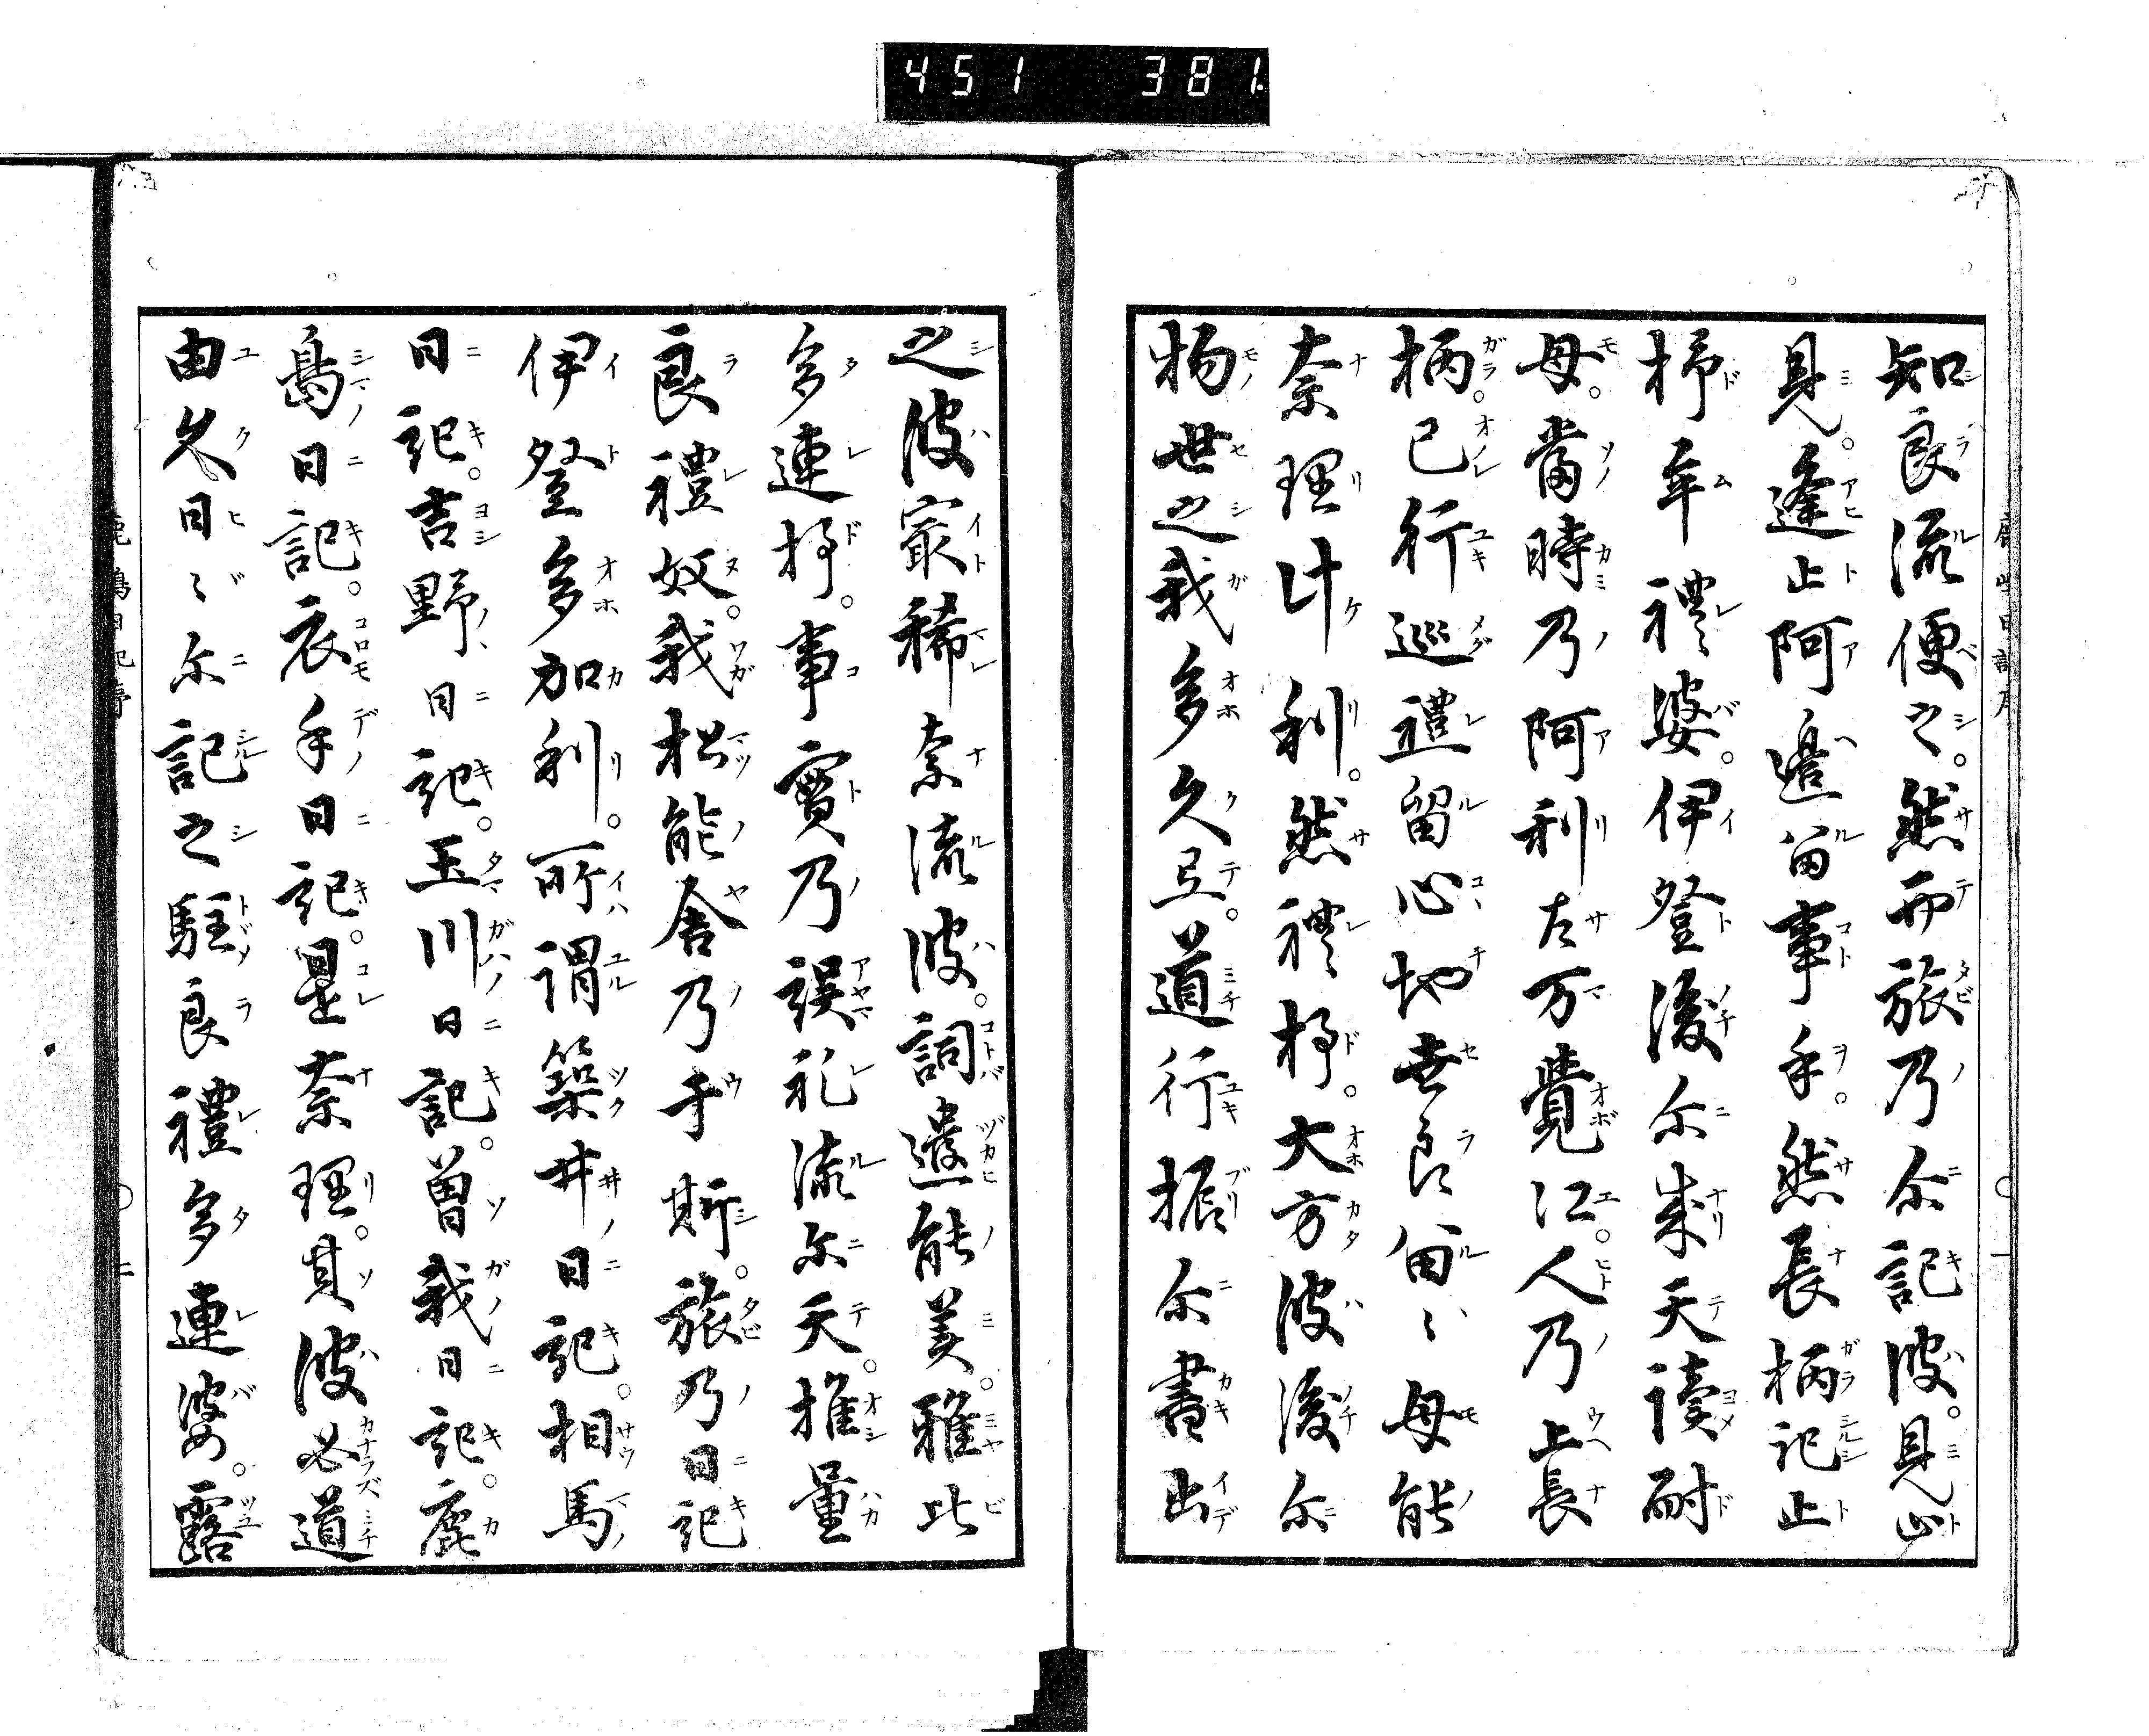 451 381.
知良流便之。然而旅乃尓記波。見止
見。逢止阿邉留事乎。然長柄記止
杼牟禮婆。伊登後尓成天讀耐
母。當時乃阿利左万覺江。人乃上長
柄。己行巡禮留心地世良留々母能
奈理計利。然禮杼。大方波後尓
物世之我多久弖。道行振尓書出
之波最稀奈流波。詞遣能美。雅比
多連杼。事實乃誤礼流尓天。推量
良禮奴。我松能舎乃宇斯。旅乃日記
伊登多加利。所謂築井日記。相馬
日記。吉野日記。玉川日記。曽我日記。鹿
島日記。衣手日記。是奈理。其波必道
由久日々尓記之駐良禮多連婆。露